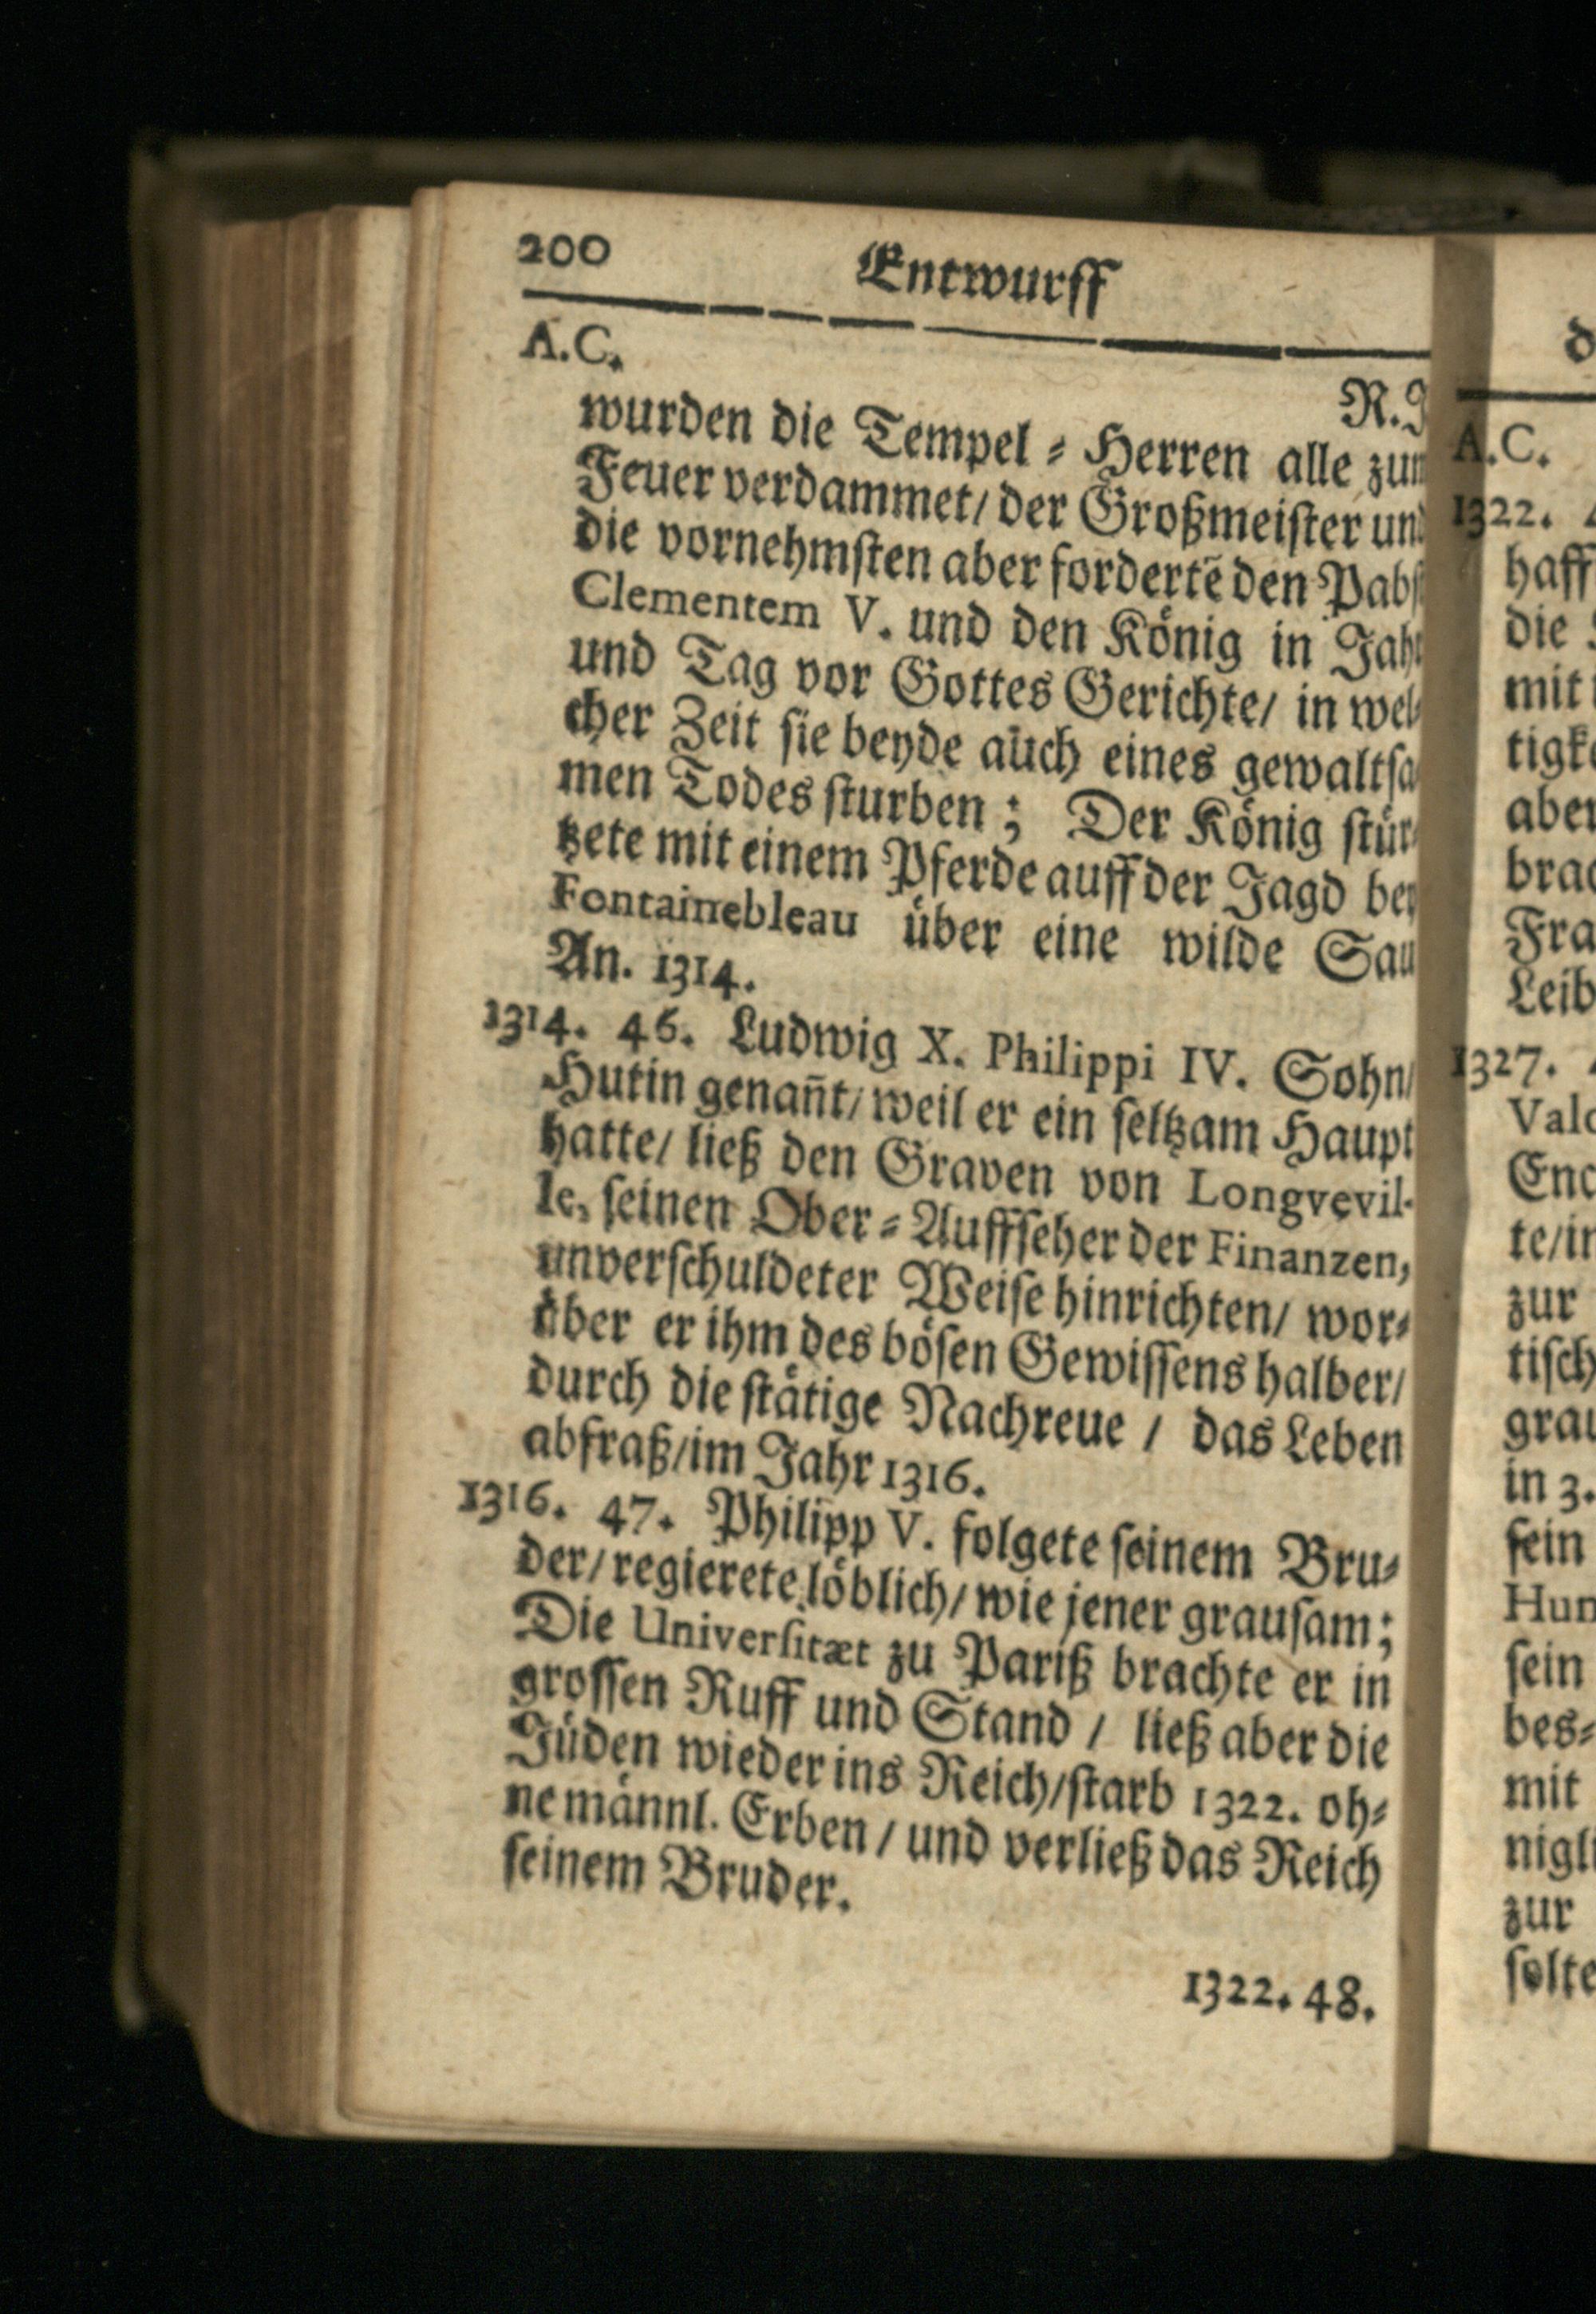 200 Entwurff
A.C. R.J
wurden die Tempel⸗Herren alle zum
Feuer verdammet/ der Großmeister und
die vornehmsten aber fordertẽ den Pabst
Clementem V. und den König in Jahr
und Tag vor Gottes Gerichte/ in wel⸗
cher Zeit sie beyde auch eines gewaltsa
men Todes sturben; Der König stür⸗
tzete mit einem Pferde auff der Jagd bey
Fontainebleau über eine wilde Sau
An. 1314.
1314. 46. Ludwig X. Philippi IV. Sohn/
Hutin genañt/ weil er ein seltzam Haupt
hatte/ ließ den Graven von Longvevil-
le, seinen Ober⸗Auffseher der Finanzen,
unverschuldeter Weise hinrichten/ wor⸗
über er ihm des bösen Gewissens halber/
durch die stätige Nachreue / das Leben
abfraß/im Jahr 1316.
1316. 47. Philipp V. folgete seinem Bru⸗
der/ regierete löblich/ wie jener grausam;
Die Universitæt zu Pariß brachte er in
grossen Ruff und Stand / ließ aber die
Jüden wieder ins Reich/starb 1322. oh⸗
ne männl. Erben / und verließ das Reich
seinem Bruder.
1322. 48.
d
A.C.
1322.
haff
die
mit
tigke
aber
brac
Fra
Leib
1327.
Valo
Enc
te/in
zur
tisch
grau
in 3.
sein
Hun
sein
bes⸗
mit
nigli
zur
solte